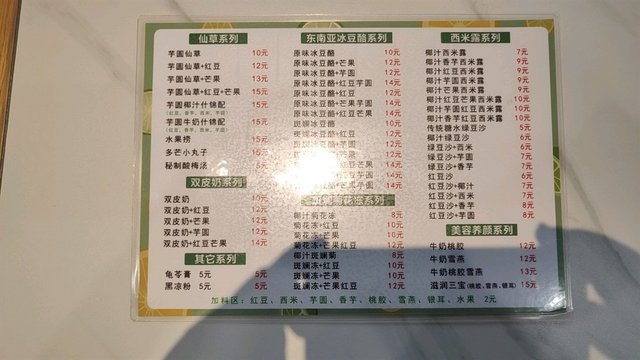 仙草系列
芋圆仙草 10元
芋圆仙草+红豆 12元
芋圆仙草+芒果 13元
芋圆仙草+红豆+芒果 15元
芋圆椰汁什锦配 15元
(红豆、香芋、西米、芋圆)
芋圆牛奶什锦配 15元
(红豆、香芋、西米、芋圆)
水果捞 15元
多芒小丸子 15元
秘制酸梅汤 5元
双皮奶系列
双皮奶 10元
双皮奶+红豆 12元
双皮奶+芒果 12元
双皮奶+芋圆 12元
双皮奶+红豆+芒果 14元
其它系列
龟苓膏 5元 5元
黑凉粉 5元 5元
东南亚冰豆酪系列
原味冰豆酪 10元
原味冰豆酪+芒果 12元
原味冰豆酪+芋圆 12元
原味冰豆酪+红豆芋圆 14元
原味冰豆酪+红豆 12元
原味冰豆酪+芒果芋圆 14元
原味冰豆酪+红豆芒果 14元
斑斓冰豆酪 10元
斑斓 12元
12元
12元
芒果 14元
芋圆 14元
芋圆 14元
菊花冻系列
椰汁菊花冻 8元
菊花冻+红豆 10元
菊花冻+芒果 10元
菊花冻+芒果红豆 12元
椰汁斑斓菊 8元
斑斓冻+红豆 10元
斑斓冻+芒果 10元
斑斓冻+芒果红豆 12元
西米露系列
椰汁西米露 7元
椰汁香芋西米露 9元
椰汁红豆西米露 9元
椰汁芋圆西米露 9元
椰汁芒果西米露 9元
椰汁红豆芒果西米露 10元
椰汁芋圆红豆西米露 10元
椰汁香芋红豆西米露 10元
传统糖水绿豆沙 5元
椰汁绿豆沙 6元
绿豆沙+西米 6元
绿豆沙+芋圆 7元
绿豆沙+香芋 7元
红豆沙 6元
红豆沙+椰汁 7元
红豆沙+西米 7元
红豆沙+香芋 8元
红豆沙+芋圆 8元
美容养颜系列
牛奶桃胶 12元
牛奶雪燕 12元
牛奶桃胶雪燕 13元
滋润三宝(桃胶,雪燕,银耳) 15元
加料区:红豆、西米、芋圆、香芋、桃胶、雪燕、银耳、水果 2元